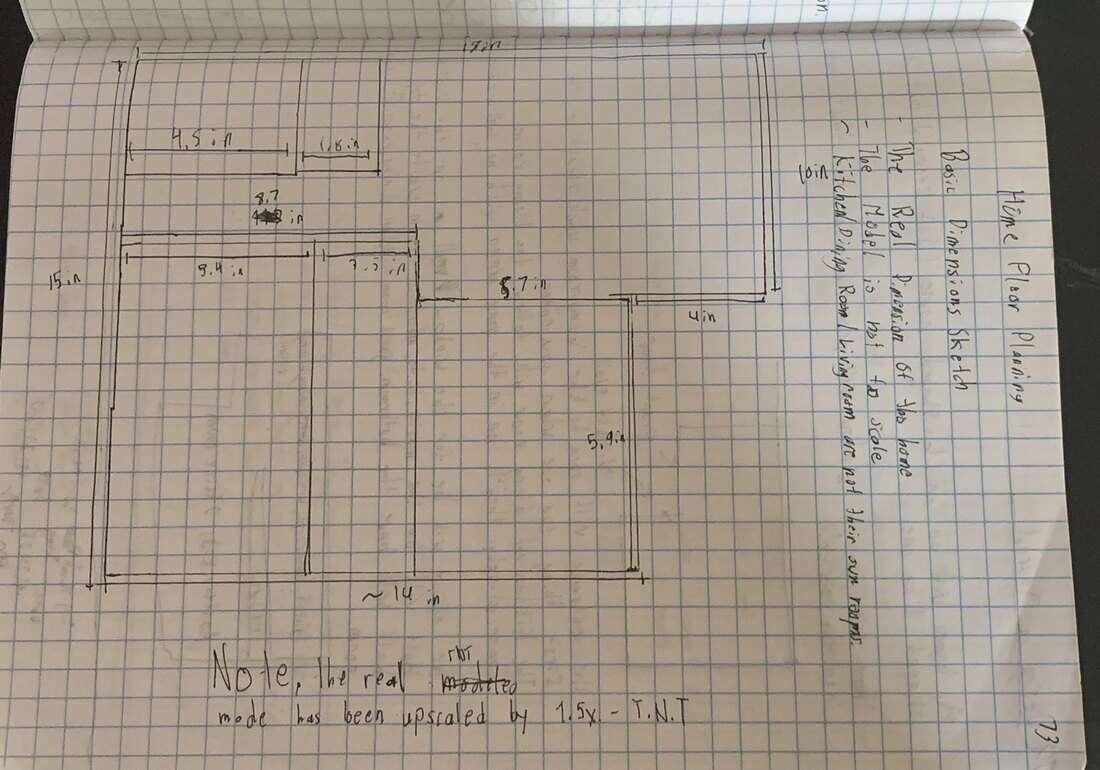 Home Floor Planning
Basic Dimensions Sketch
- The Real Dimension of the home
- The Model is not to scale
- Kitchen/Dining Room/Living room are not their own rooms.
18 in
4.5 in
1.8 in
8.7 in
10in
15 in
5.4 in
in
5.7 in
4 in
5.9in
~ 14 in
Note, The real
mode has been upscaled by 1.5x. - T.N.T
73
on.